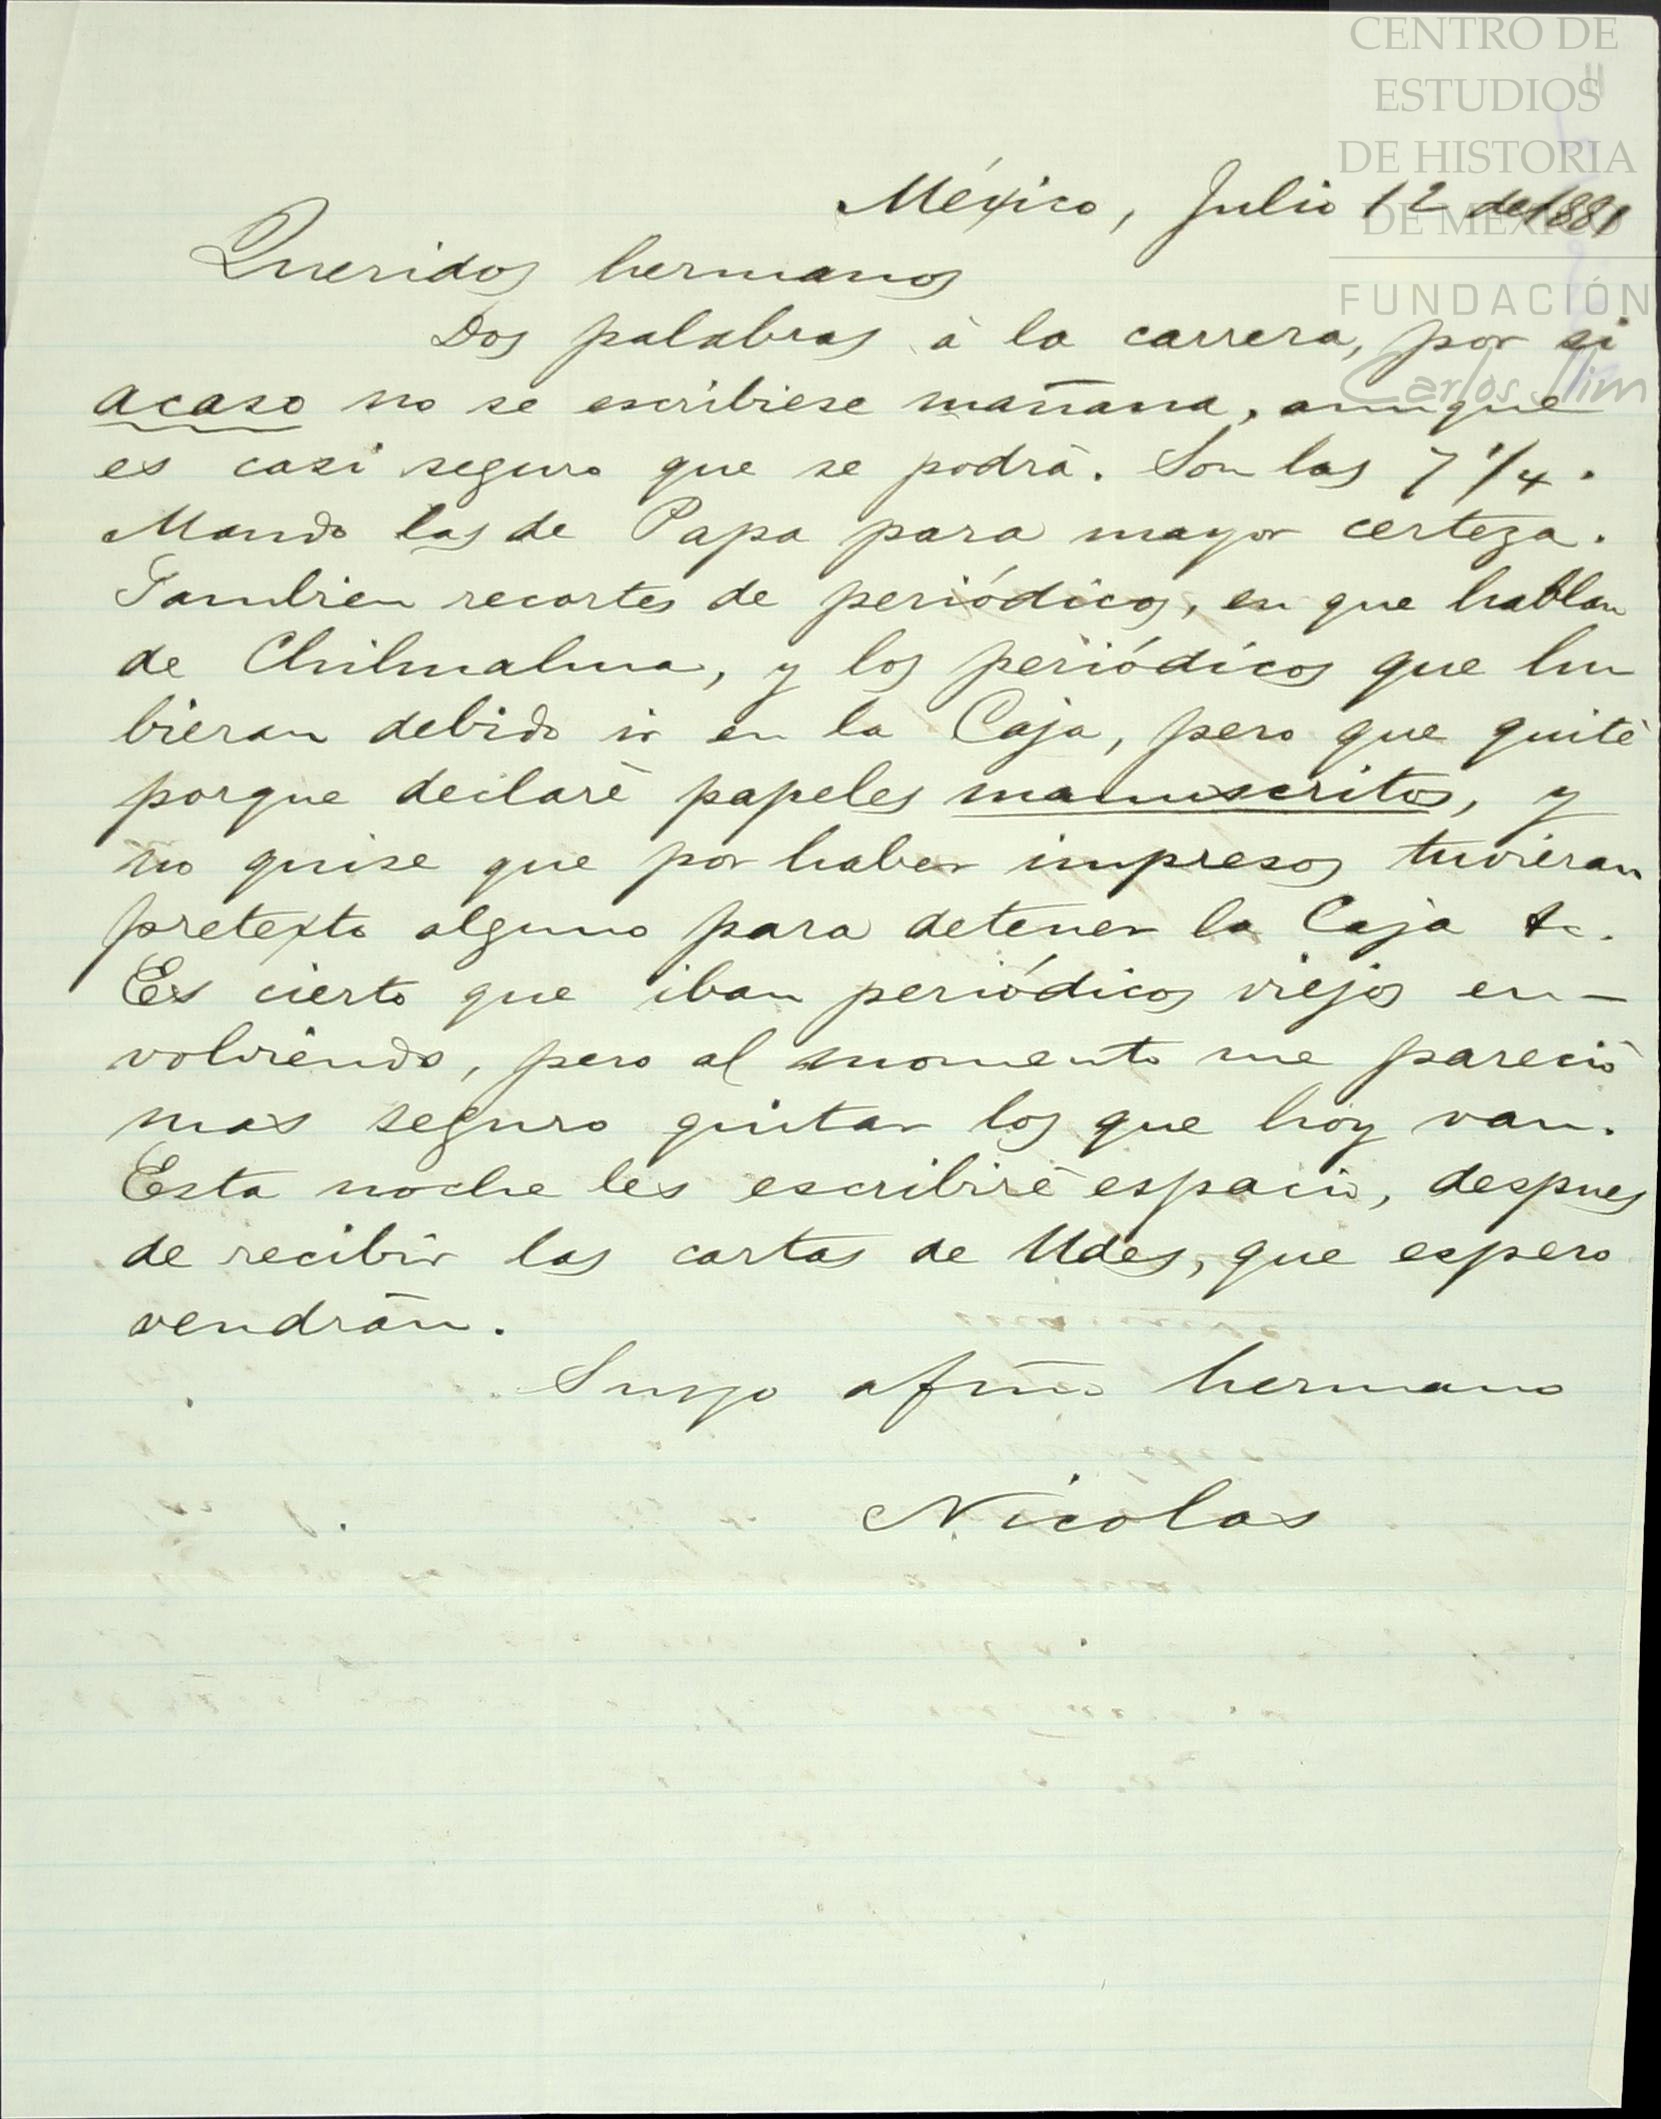 CENTRO DE
ESTUDIOS
DE HISTORIA
DE MÉXICO
FUNDACIÓN
Carlos Slim
México, Julio 12 de 1881
Queridos hermanos
Dos palabras à la carrera, por si
acaso no se escribiese mañana, aunque
es casi seguro que se podrà. Son las 7 1/4.
Mando las de Papa para mayor certeza.
Tambien recortes de periódicos, en que hablan
de Chilmalma, y los periódicos que hu
bieran debido ir en la Caja, pero que quitè
porque declarè papeles manuscritos, y
no quise que por haber impresos tuvieran
pretexto alguno para detener la Caja &c.
Es cierto que iban periódicos viejos en-
volviendo, pero al momento me pareciò
mas seguro quitar los que hoy van.
Esta noche les escribirè espacio, despues
de recibir las cartas de Udes, que espero
vendràn.
Suyo afmo hermano
Nicolas